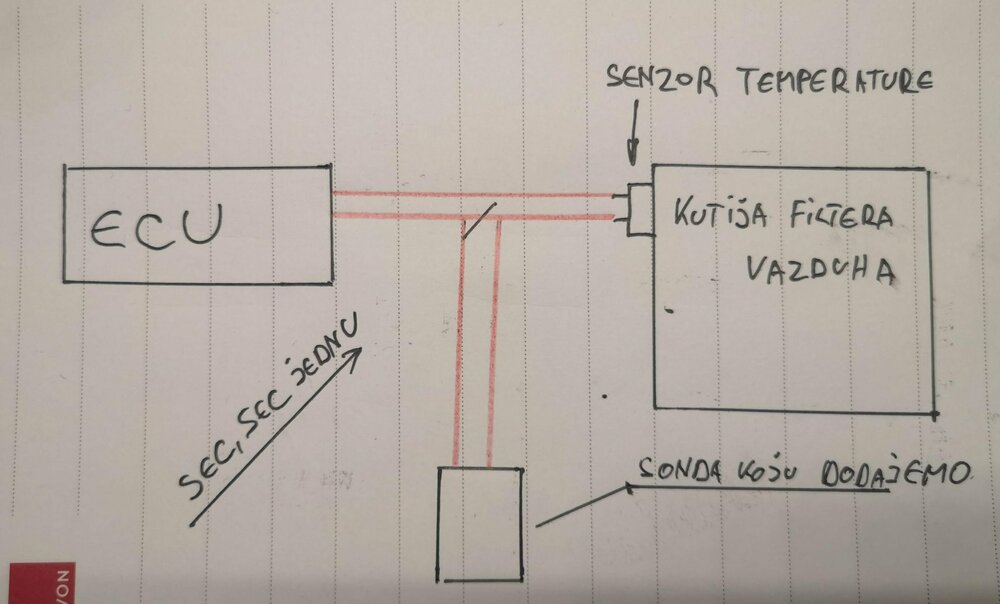 SENZOR TEMPERATURE
ECU
KUTIJA FILTERA
VAZDUHA
SEC, SEC JEDNU
SONDA KOJU DODAJEMO
VON